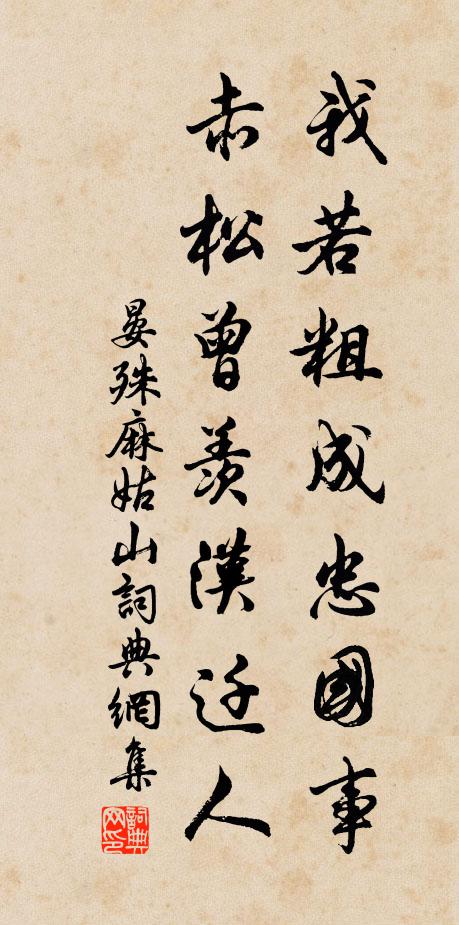 我若粗成忠國事
赤松曾羨漢廷人
晏殊麻姑山詞典網集
詞典網印